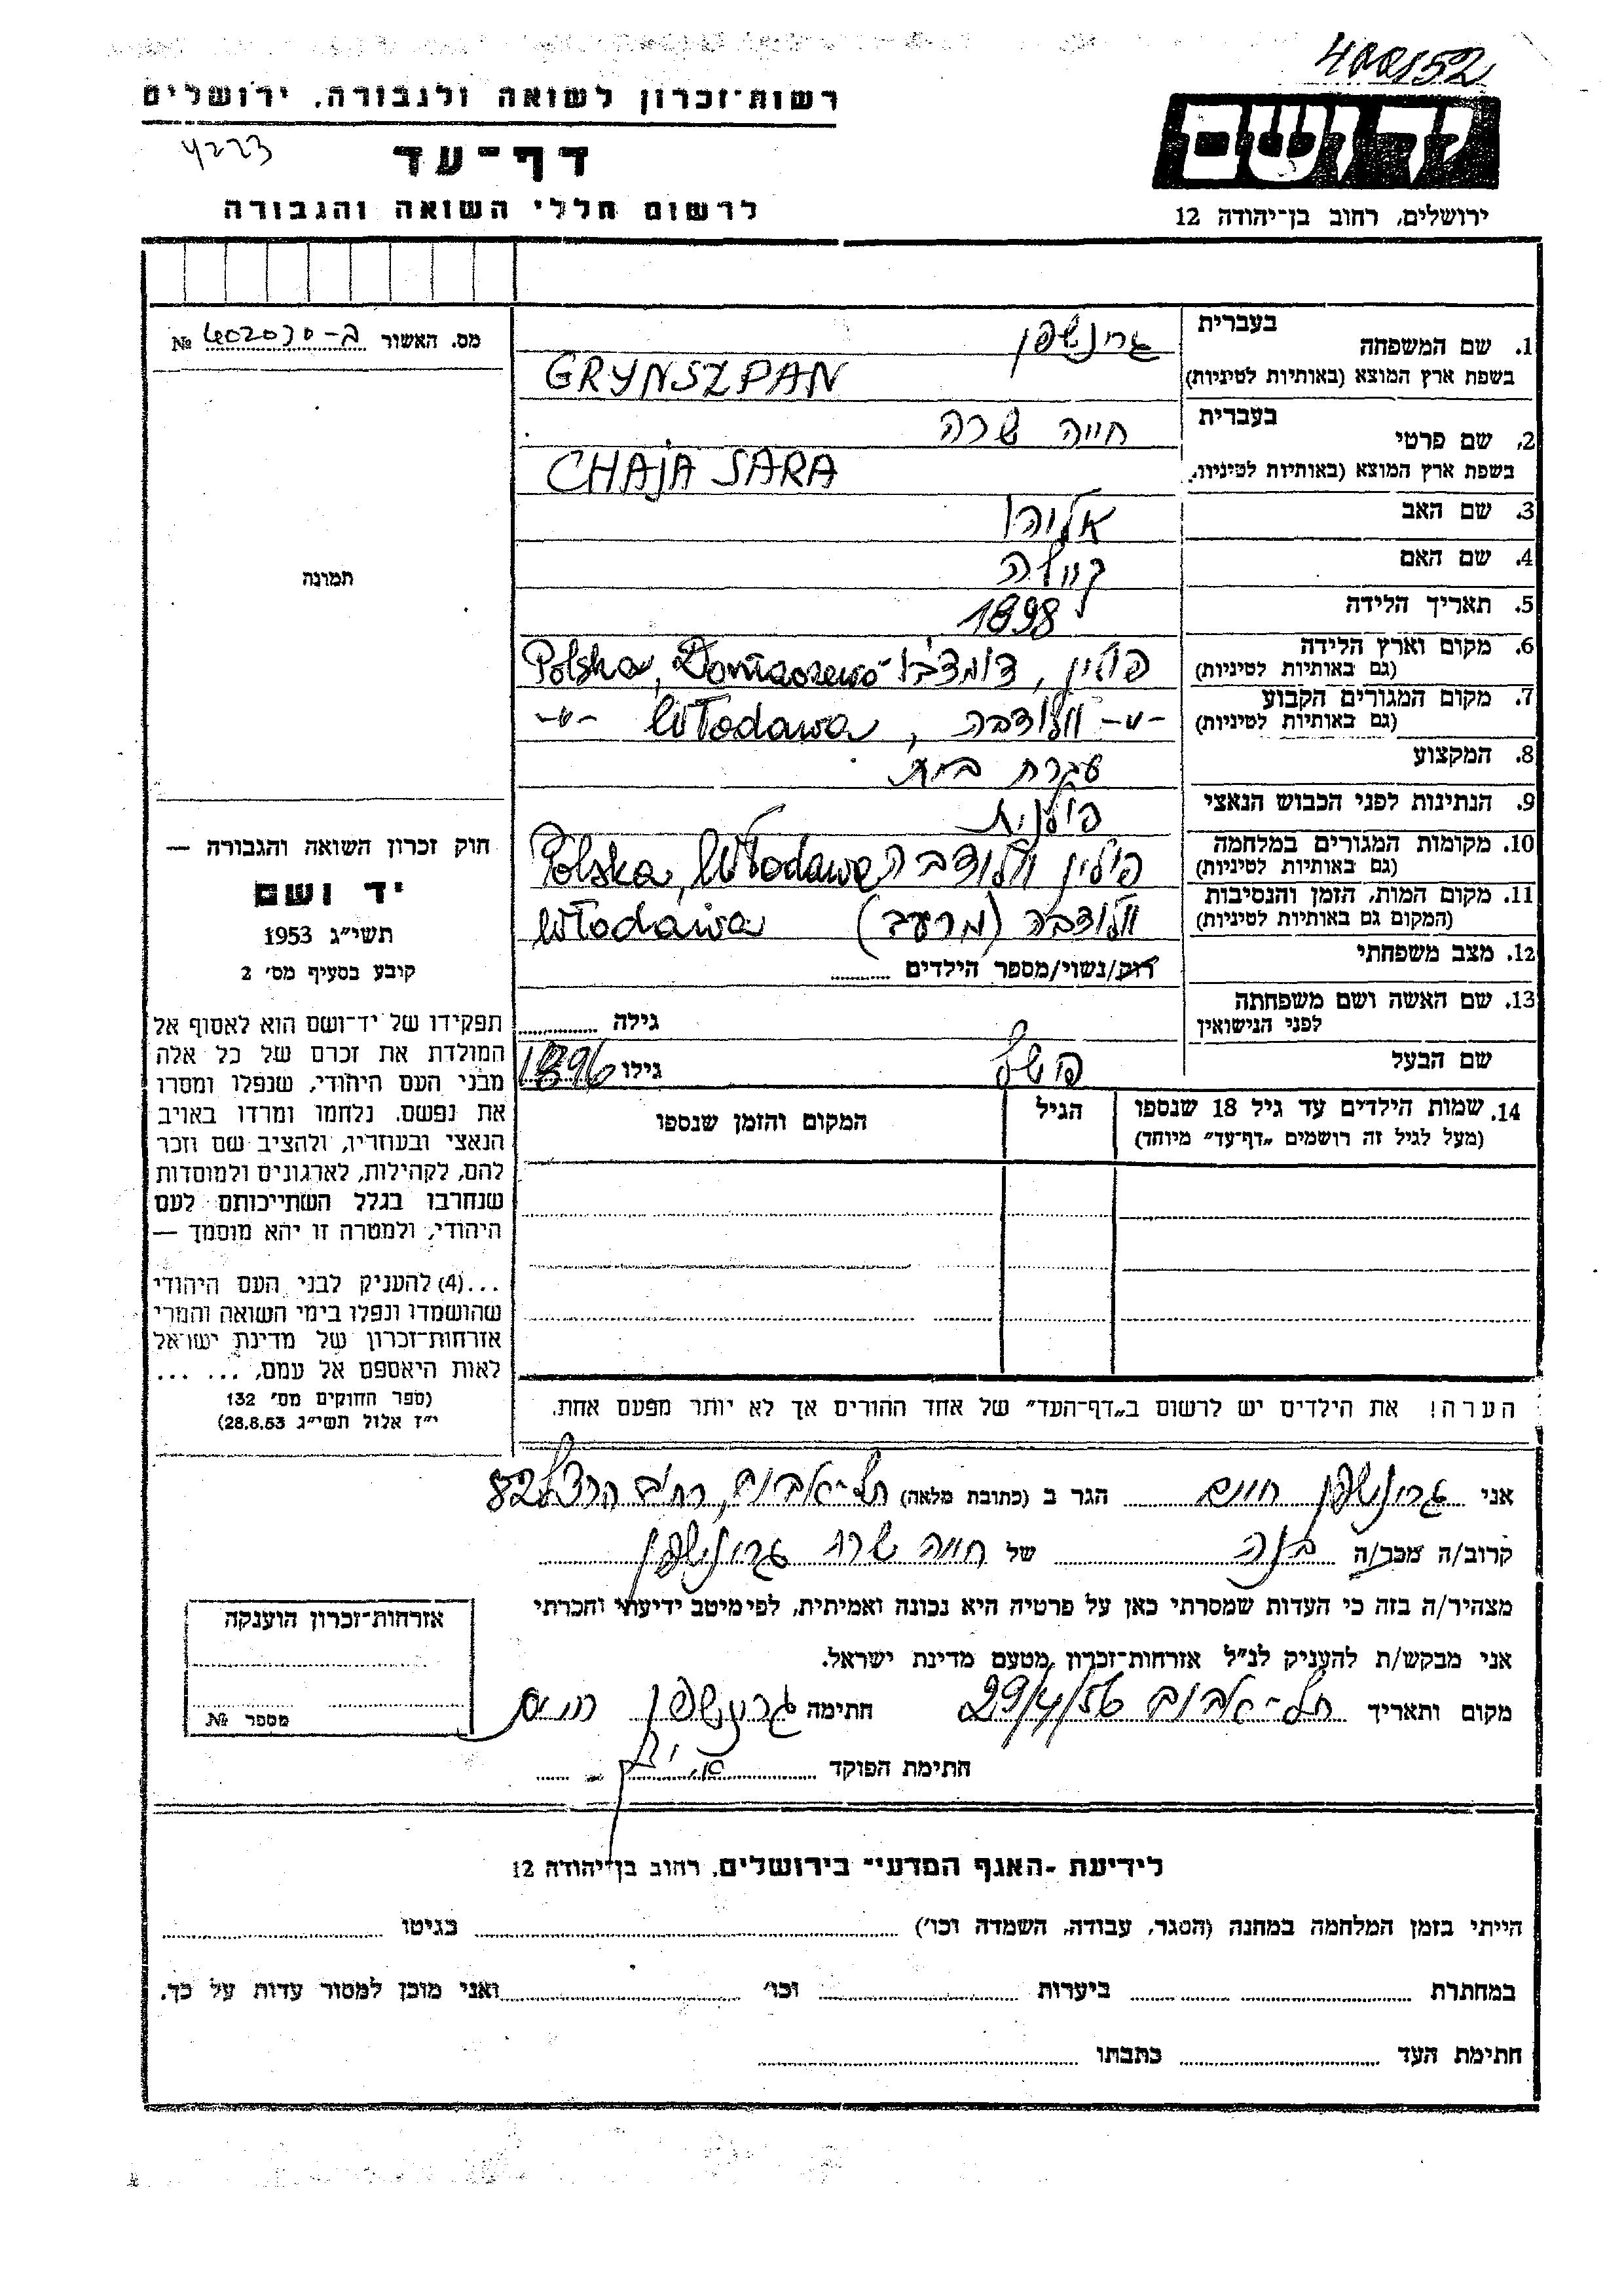 400152
רשות־זכרון לשואה ולגבורה, ירושלים
4223
דף־עד
לרשום חללי השואה והגבורה
יד ושם
ירושלים, רחוב בן־יהודה 12
מס. האשור ב-402030 №
תמונה
1. שם המשפחה
בעברית
גרינשפן
בשפת ארץ המוצא (באותיות לטיניות)
GRYNSZPAN
2. שם פרטי
בעברית
חייה שרה
בשפת ארץ המוצא (באותיות לטיניות.
CHAJA SARA
3. שם האב
אליהו
4. שם האם
5. תאריך הלידה
1898
6. מקום וארץ הלידה
(גם באותיות לטיניות)
פולין, Polska,
7. מקום המגורים הקבוע
(גם באותיות לטיניות)
-"- וולודבה, Włodawa -"-
8. המקצוע
עקרת בית
9. הנתינות לפני הכבוש הנאצי
פולנית
10. מקומות המגורים במלחמה
(גם באותיות לטיניות)
פולין וולודבה Polska, Włodawa
11. מקום המות, הזמן והנסיבות
(המקום גם באותיות לטיניות)
וולודבה (מרעב) Włodawa
12. מצב משפחתי
רווק/נשוי/מספר הילדים
13. שם האשה ושם משפחתה
לפני הנישואין
גילה
שם הבעל
גילו 1896
14. שמות הילדים עד גיל 18 שנספו
(מעל לגיל זה רושמים „דף־עד" מיוחד)
הגיל
המקום והזמן שנספו
חוק זכרון השואה והגבורה —
יד ושם
תשי"ג 1953
קובע בסעיף מס' 2
תפקידו של יד־ושם הוא לאסוף אל
המולדת את זכרם של כל אלה
מבני העם היהודי, שנפלו ומסרו
את נפשם. נלחמו ומרדו באויב
הנאצי ובעוזריו, ולהציב שם וזכר
להם, לקהילות, לארגונים ולמוסדות
שנחרבו בגלל השתייכותם לעם
היהודי, ולמטרה זו יהא מוסמך —
...(4) להעניק לבני העם היהודי
שהושמדו ונפלו בימי השואה והמרי
אזרחות־זכרון של מדינת ישראל
לאות היאספם אל עמם, ... ...
(ספר החוקים מס' 132
י"ז אלול תשי"ג 28.8.53)
הערה! את הילדים יש לרשום ב„דף־העד" של אחד ההורים אך לא יותר מפעם אחת.
אני גרינשפן חיים הגר ב (כתובת מלאה) תל-אביב, רח' הרצל 82
קרוב/ה מכר/ה בנה של חייה שרה גרינשפן
מצהיר/ה בזה כי העדות שמסרתי כאן על פרטיה היא נכונה ואמיתית, לפי מיטב ידיעתי והכרתי
אני מבקש/ת להעניק לנ"ל אזרחות־זכרון מטעם מדינת ישראל.
מקום ותאריך תל-אביב 29/4/56 חתימה גרינשפן חיים
חתימת הפוקד
אזרחות־זכרון הוענקה
מספר №
לידיעת -האגף המדעי״ בירושלים, רחוב בן־יהודה 12
הייתי בזמן המלחמה במחנה (הסגר, עבודה, השמדה וכו') בגיטו
במחתרת ביערות וכו' ואני מוכן למסור עדות על כך.
חתימת העד כתבתו